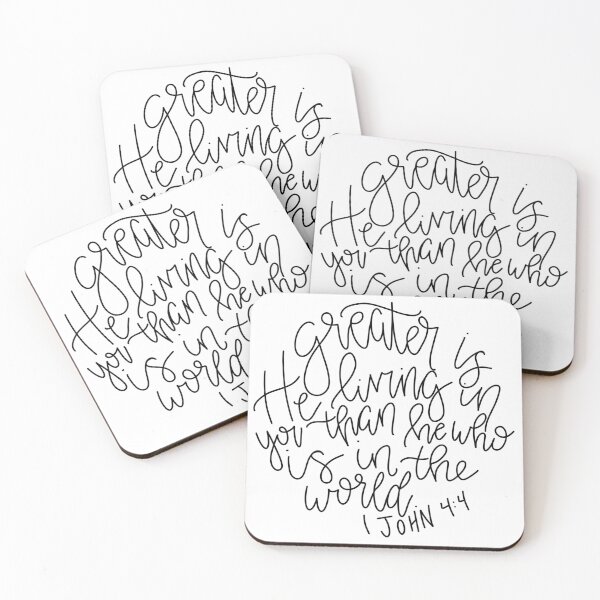 greater is
He living in
he who
greater is
He living in
you than he who
is in the
greater is
He living in
you than he who
is in
world
greater is
He living in
you than he who
is in the
world
1 JOHN 4:4